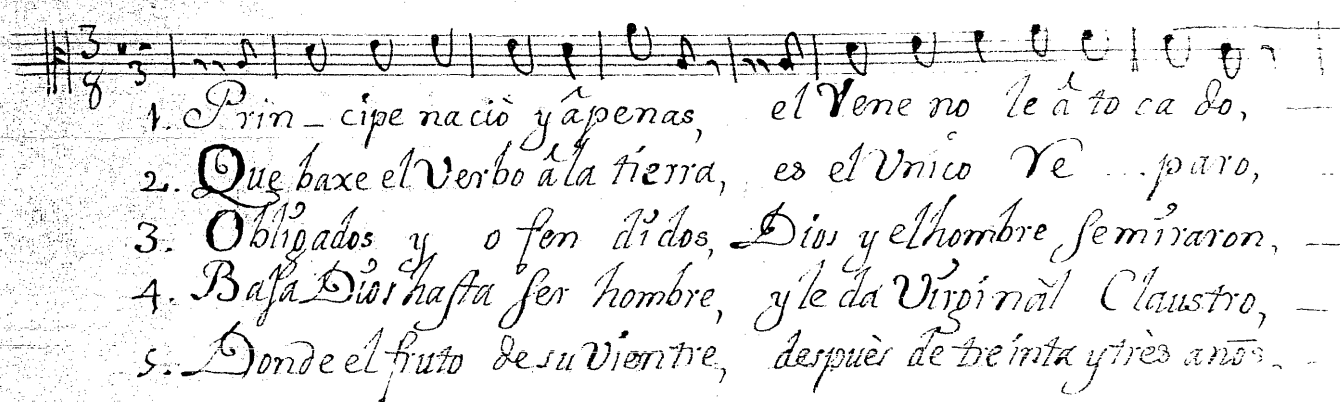 3 8 3
1. Prin_cipe naciò y âpenas, el Veneno le â tocado,
2. Que baxe el Verbo â la tierra, es el Unico Re...paro,
3. Obligados y ofendidos, Dios y el hombre se miraron,
4. Basa Dios hasta ser hombre, y le da Virginàl Claustro,
5. Donde el fruto de su Vientre, despuès de treinta y três años